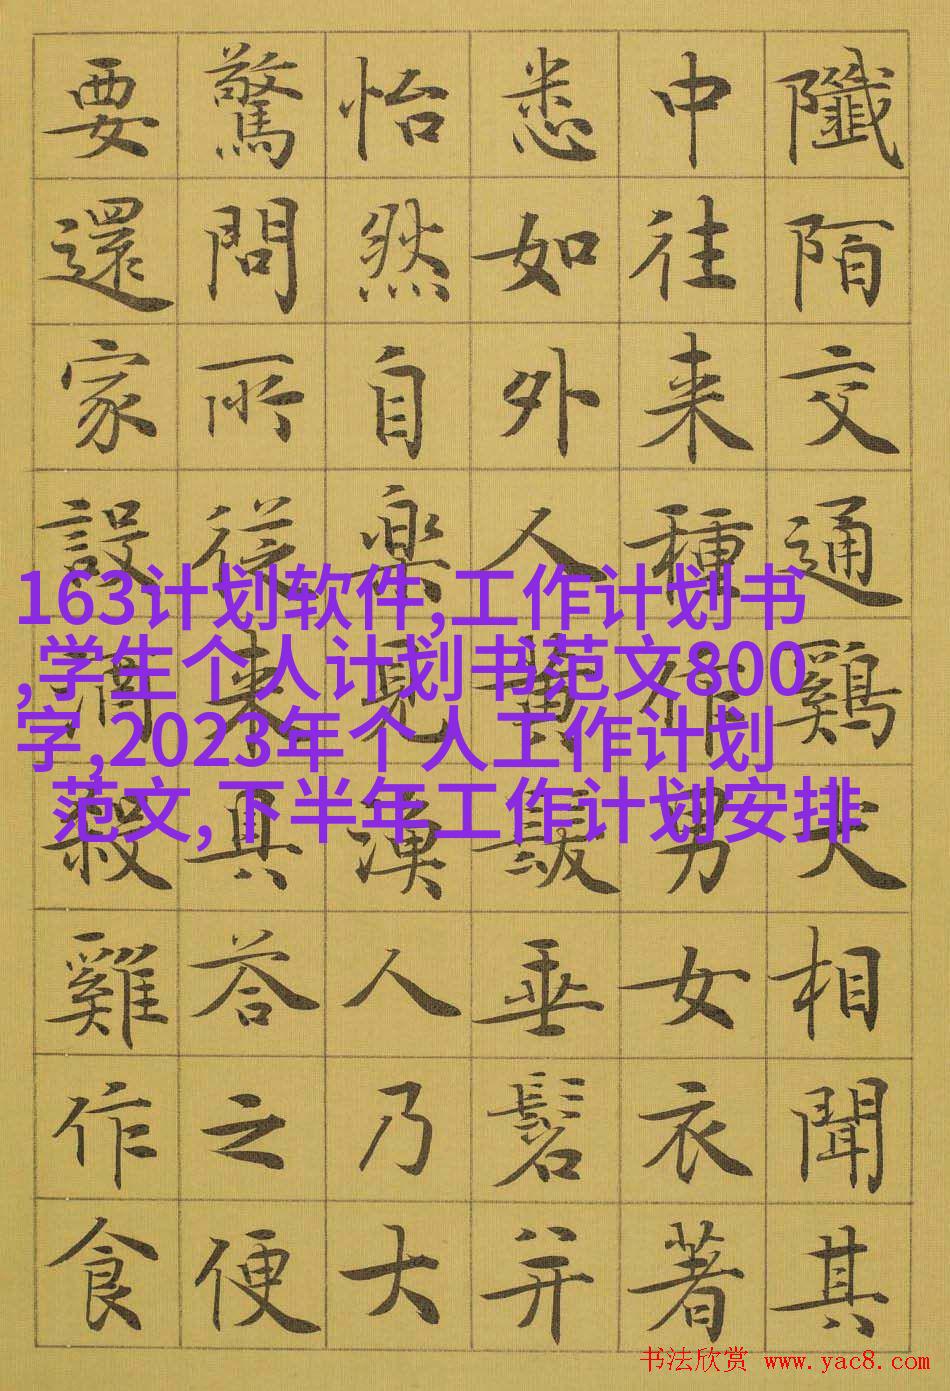 陌交通鷄犬相聞其
中往来種作男女衣著
悉如外人黄髮垂髫并
怡然自楽見漁人乃大
驚問所従来具答之便
要還家設酒殺雞作食
163计划软件,工作计划书
,学生个人计划书范文800
字,2023年个人工作计划
范文,下半年工作计划安排
书法欣赏 www.yac8.com